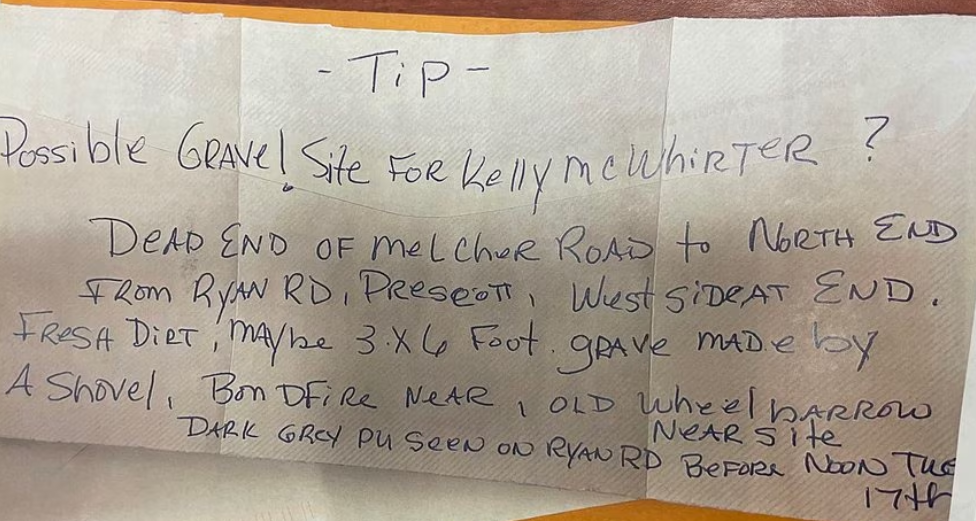 - Tip -
Possible GRAVe! Site FoR Kelly McWhiRTeR ?
DeAD END OF MelCheR ROAD to NoRTH END
FRom RyAN RD, PRescoTT, West SiDe AT END.
FResH DiRT, MAybe 3 X 6 Foot. gRAVe MADe by
A Shovel, BonDFiRe NeAR, OLD WheelbARROW
NeAR Site
DARK GReY PU SeeN ON RYAN RD BeFoRe NOON Tue
17th